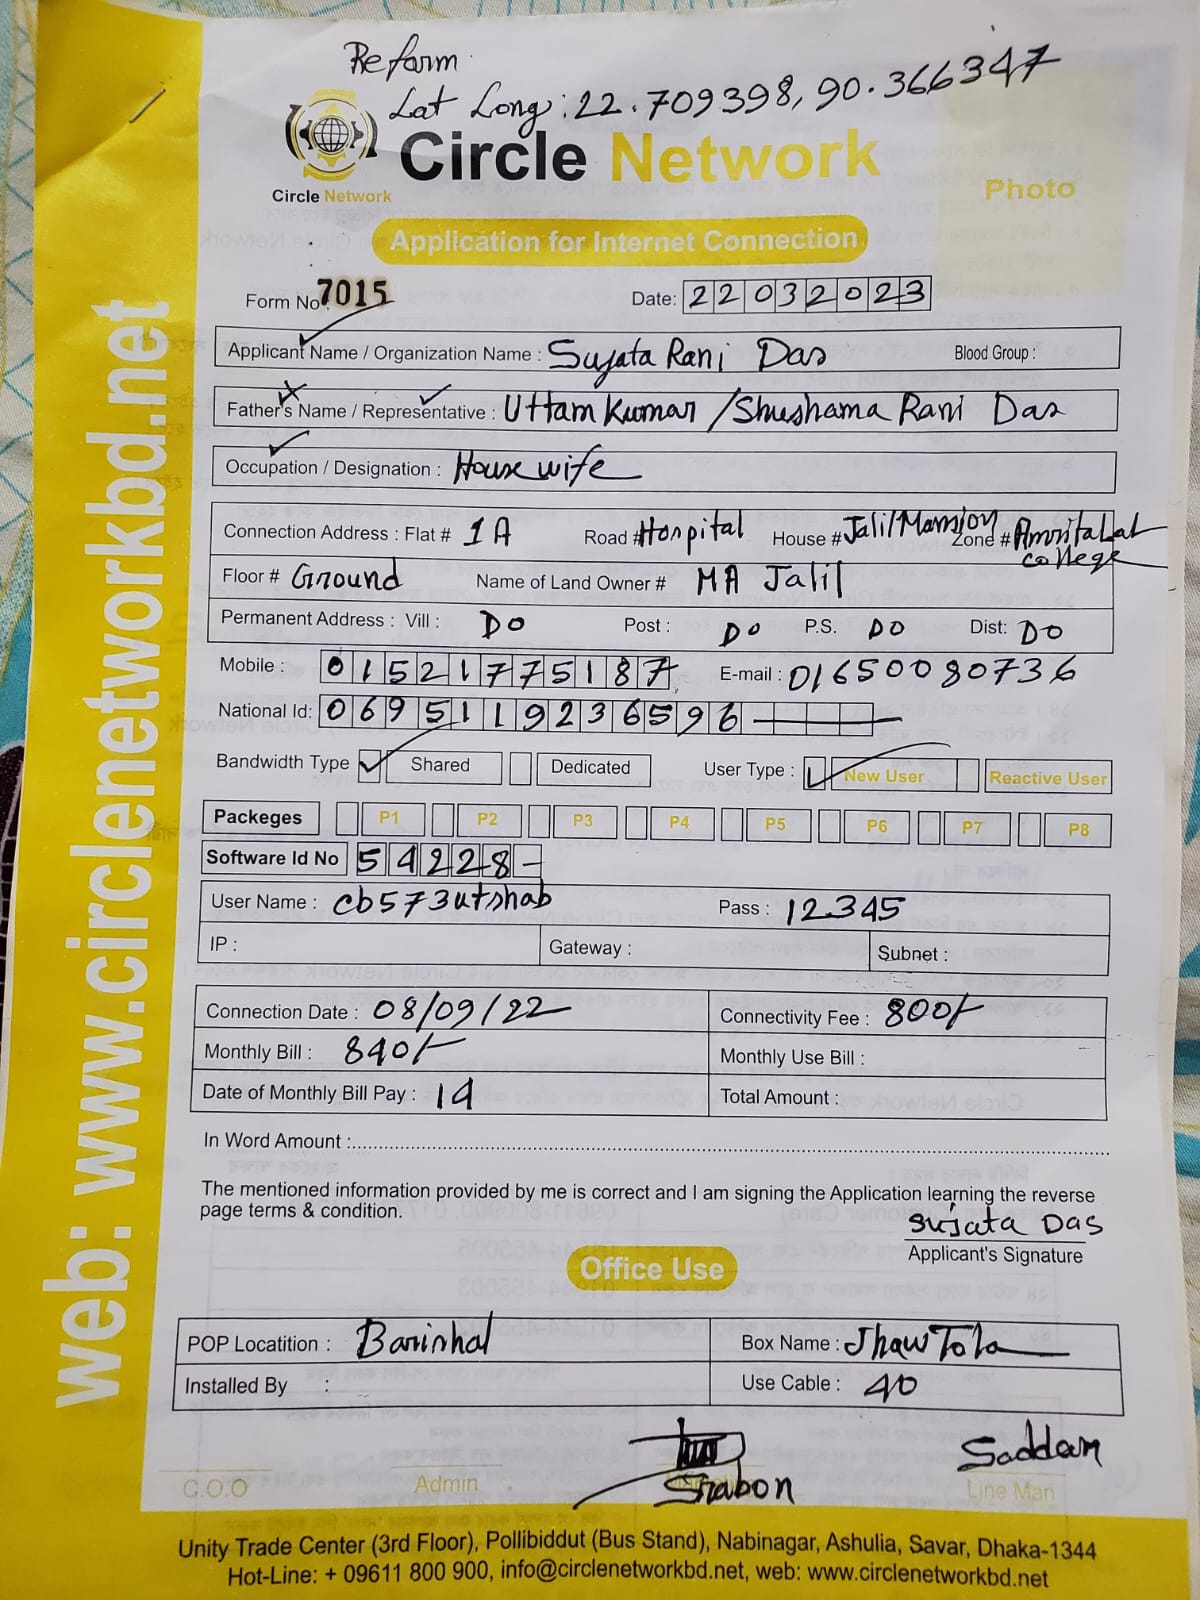 Reform
Lat Long: 22.709398, 90.366347
Circle Network
Circle Network
Photo
Application for Internet Connection
Form No: 7015 Date: 22032023
Applicant Name / Organization Name : Sujata Rani Das Blood Group :
Father's Name / Representative : Uttam Kumar / Shushama Rani Das
Occupation / Designation : House wife
Connection Address : Flat # 1A Road # Hospital House # Jalil Mansion Zone # Amrita Lal college
Floor # Ground Name of Land Owner # MA Jalil
Permanent Address : Vill : DO Post : DO P.S. DO Dist: DO
Mobile : 01521775187 E-mail : 01650080736
National Id: 0695119236596
Bandwidth Type Shared Dedicated User Type : New User Reactive User
Packeges P1 P2 P3 P4 P5 P6 P7 P8
Software Id No 54228-
User Name : cb573utshab Pass : 12345
IP : Gateway : Subnet :
Connection Date : 08/09/22 Connectivity Fee : 800/-
Monthly Bill : 840/- Monthly Use Bill :
Date of Monthly Bill Pay : 14 Total Amount :
In Word Amount :
The mentioned information provided by me is correct and I am signing the Application learning the reverse
page terms & condition.
Sujata Das
Applicant's Signature
Office Use
POP Locatition : Barishal Box Name : Jhaw Tola
Installed By : Use Cable : 40
Shabon Saddam
C.O.O Admin Line Man
Unity Trade Center (3rd Floor), Pollibiddut (Bus Stand), Nabinagar, Ashulia, Savar, Dhaka-1344
Hot-Line: + 09611 800 900, info@circlenetworkbd.net, web: www.circlenetworkbd.net
web: www.circlenetworkbd.net